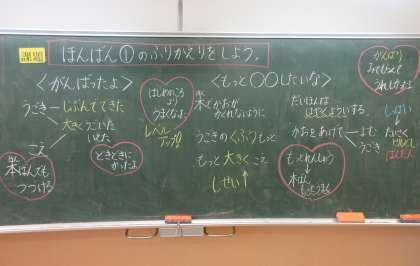 課題
ほんばん①のふりかえりをしよう。
<がんばったよ>
うごき
じぶんでできた
大きくうごいた
いけた
こえ
本ばんでも
つづける
どきどきに
かったよ
はじめのころ
より
うまくなった
レベル
アップ!
<もっと〇〇したいな>
木でかおが
かくれないように
うごきのくふうもっと
もっと大きくこえ
しせい
だいほんは
かおをあげて
よむ
うごき
もっとれんしゅう
本ばん
もっとうまく
がんばり
みてもらえて
うれしかったよ
しっぱい
たいせつ